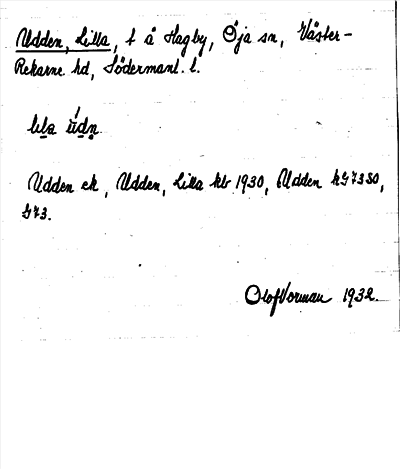 Udden, Lilla, t å Hagby, Öja sn, Väster-
Rekarne hd, Södermanl. l.
lila ùdn
Udden ek, Udden, Lilla kb 1930, Udden kG73SO,
G73.
Olof Vorman 1932.